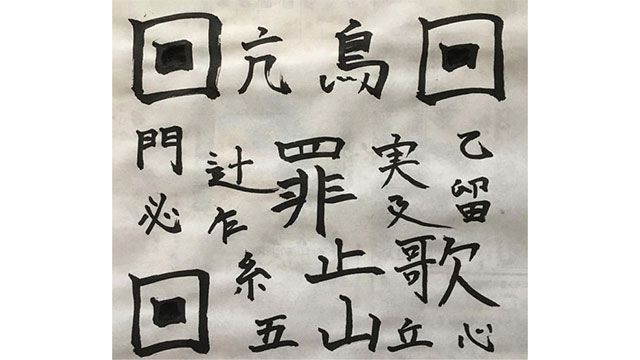 回亢鳥回
門辻罪実乙
必乍及留
回糸止歌
五山丘心